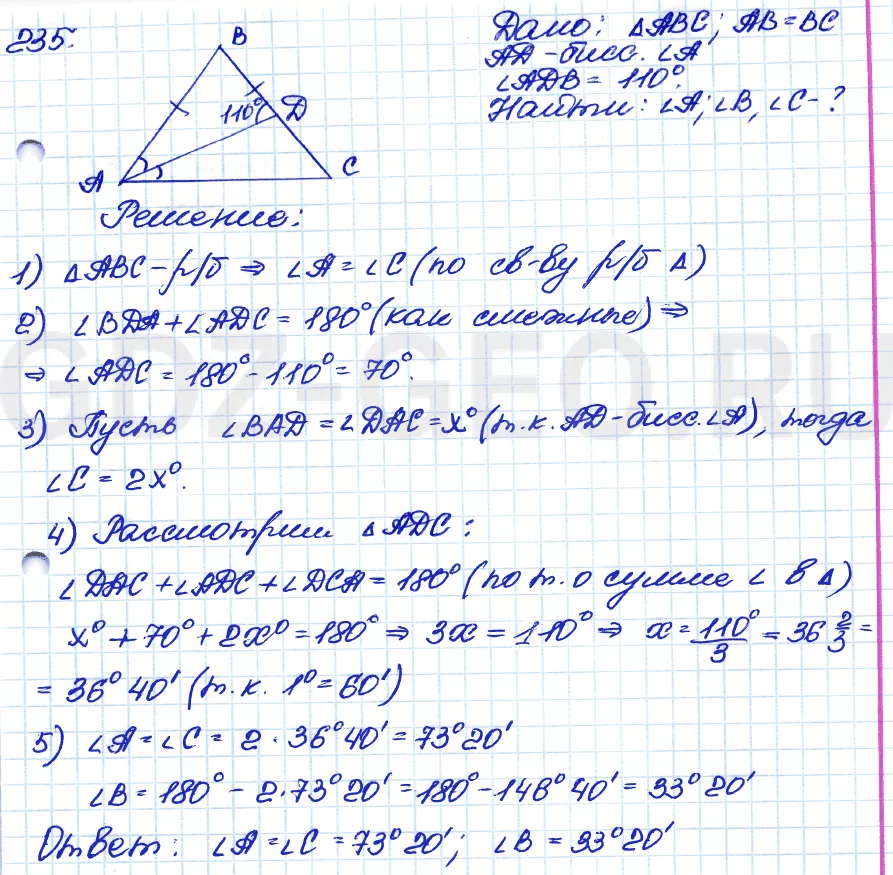 235.
Дано: △ABC; AB=BC
AD-бисс. ∠A
∠ADB = 110°.
Найти: ∠A; ∠B, ∠C-?
B
110°
D
A
C
Решение:
1) △ABC-р/б ⇒ ∠A = ∠C (по св-ву р/б △)
2) ∠BDA + ∠ADC = 180° (как смежные) ⇒
⇒ ∠ADC = 180° - 110° = 70°.
3) Пусть ∠BAD = ∠DAC = x° (т.к. AD-бисс. ∠A), тогда
∠C = 2x°.
4) Рассмотрим △ADC:
∠DAC + ∠ADC + ∠DCA = 180° (по т. о сумме ∠ в △)
x° + 70° + 2x° = 180° ⇒ 3x = 110° ⇒ x = 110°/3 = 36 2/3 =
= 36° 40' (т.к. 1° = 60')
5) ∠A = ∠C = 2 · 36° 40' = 73° 20'
∠B = 180° - 2·73° 20' = 180° - 146° 40' = 33° 20'
Ответ: ∠A = ∠C = 73° 20'; ∠B = 33° 20'
GDZ-GEO.RU